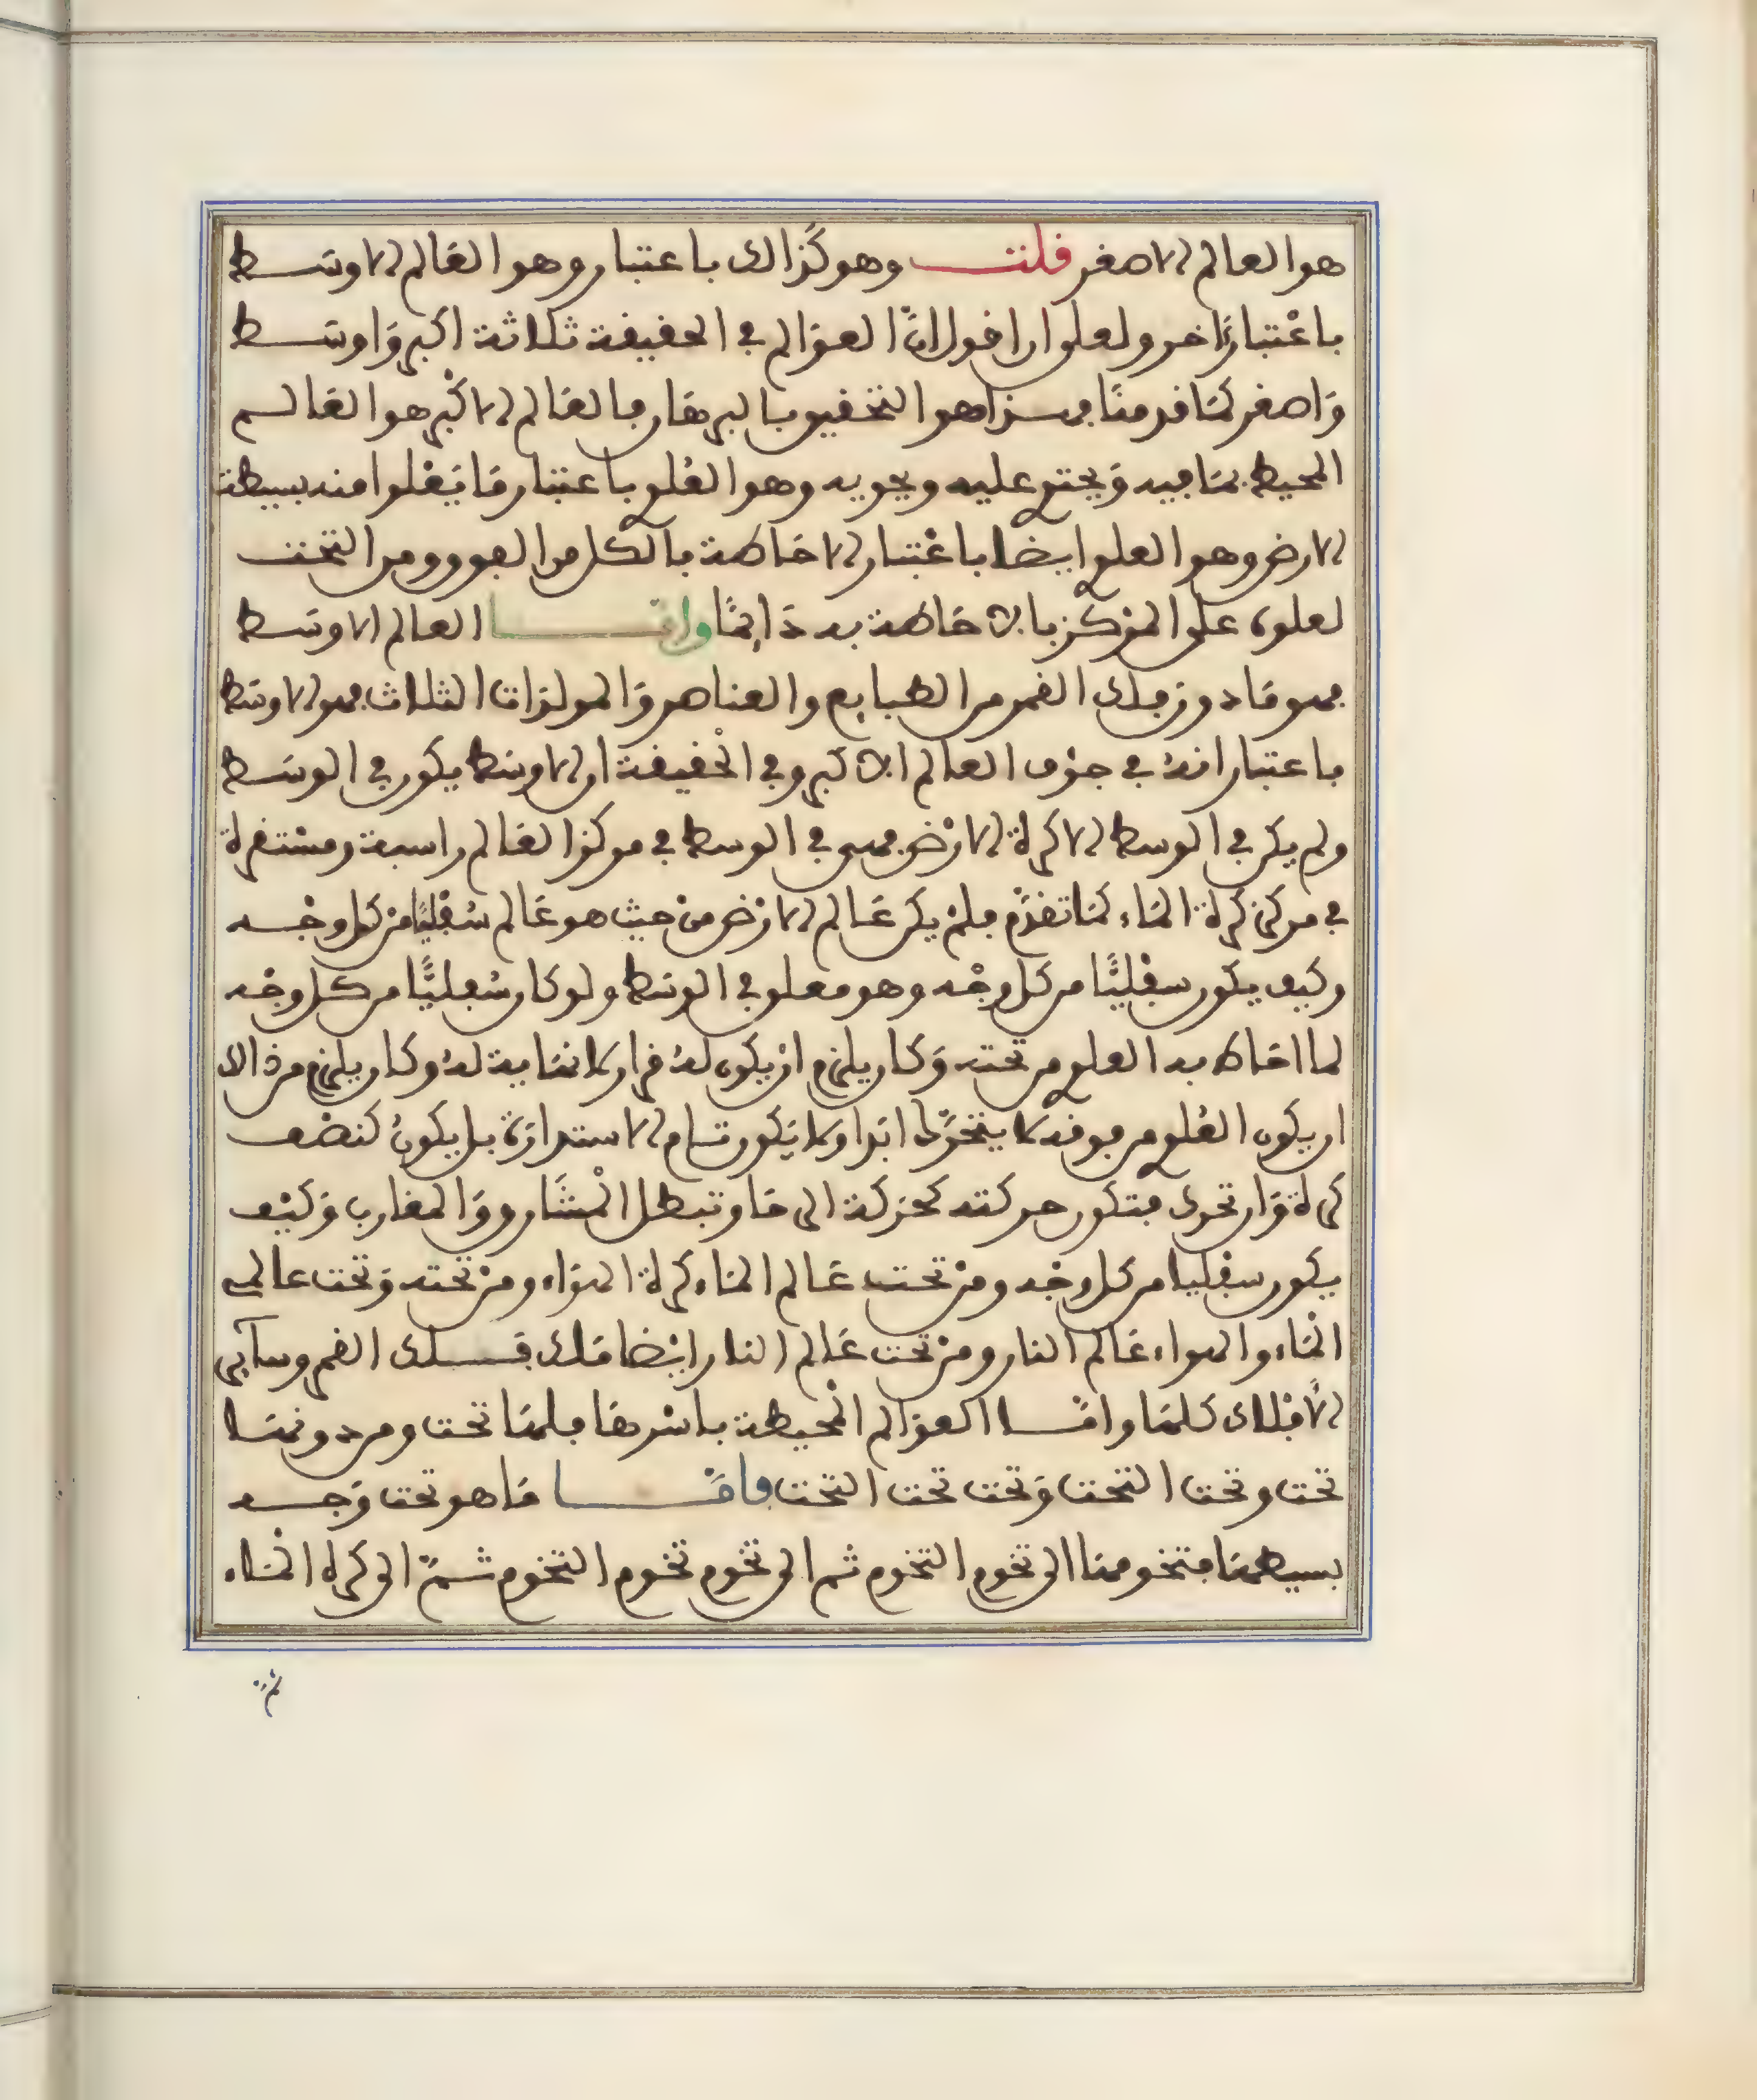 هو العالم الاصغر قلت وهو كَذالك باعتبار وهو العَالم الاوسَط
باعْتبار ءَاخر ولعلى ان اقول انّ العوَالم في الحقيقة ثلاثة اكبر وَاوسَط
وَاصغر كمَا قدمنَا فهذا هو التحقيق بالبرهَان فالعَالم الاكْبر هو العَالم
المحيط بمَا فيه وَيحتوي عليه ويحويه وهو العُلوي باعتبَار مَا يَعْلوا منه بسيطة
الارض وهو العلوي ايضا باعْتبَار الاحَاطة بالكل من الفوق ومن التحت
لعلوه على المرْكز بالاحَاطة به دَائمًا وامَّا العالم الاوسَط
فهو مَا دون فلك القمر من الطبايع والعناصر وَالمولدَات الثلاث فهو الاوسَط
باعتبار انهُ في جوْف العالم الاكبر وفي الحْقيقة ان الاوسَط يكون في الوسَط
ولم يكن في الوسط الا كرة الارْض فهي في الوسط في مركز العَالم راسبة ومسْتقرة
في مركز كرة المَاء كمَا تقدَّم فلمْ يكن عَالم الارْض منْ حيث هو عَالم سُفْليًّا منْ كل وجْه
وكيف يكون سفْليًّا من كل وجْه وهو معلق في الوسَط ولو كان سُفليًّا من كل وجْه
لما احَاط به العلوي من تحته وَكان يلزم انْ يكون لهُ قرار لا نهَاية لهُ وكان يلزم من ذالك
ان يكون العُلوي من فوقه لا يتحرَّك ابَدا ولا يَكون تام الاستدارَة بل يكونُ كنصْف
كرة وَان تحرك فتكون حركته كحَركة الرحَا وتبطل الْمشَارق وَالمغارب وَكيْف
يكون سفليا من كل وجْه ومنْ تحت عَالم المَاء كرة الهوَاء ومنْ تحته وَتحت عالمي
الْمَاء والهواء عَالم النار ومنْ تحت عَالم النار ايْضا فلك القمر وسآئر
الأفْلاك كلهَا وامَّا العوَالم الْمحيطة باسْرهَا فلهَا تحت ومن دونهَا
تحت وتحت التحت وَتحت تحت التحت وامَّا مَا هو تحت وَجه
بسيطهَا فتخومهَا الى تخوم التخوم ثم الى تخوم تخوم التخوم ثمَّ الى كرة المَاء
ثم